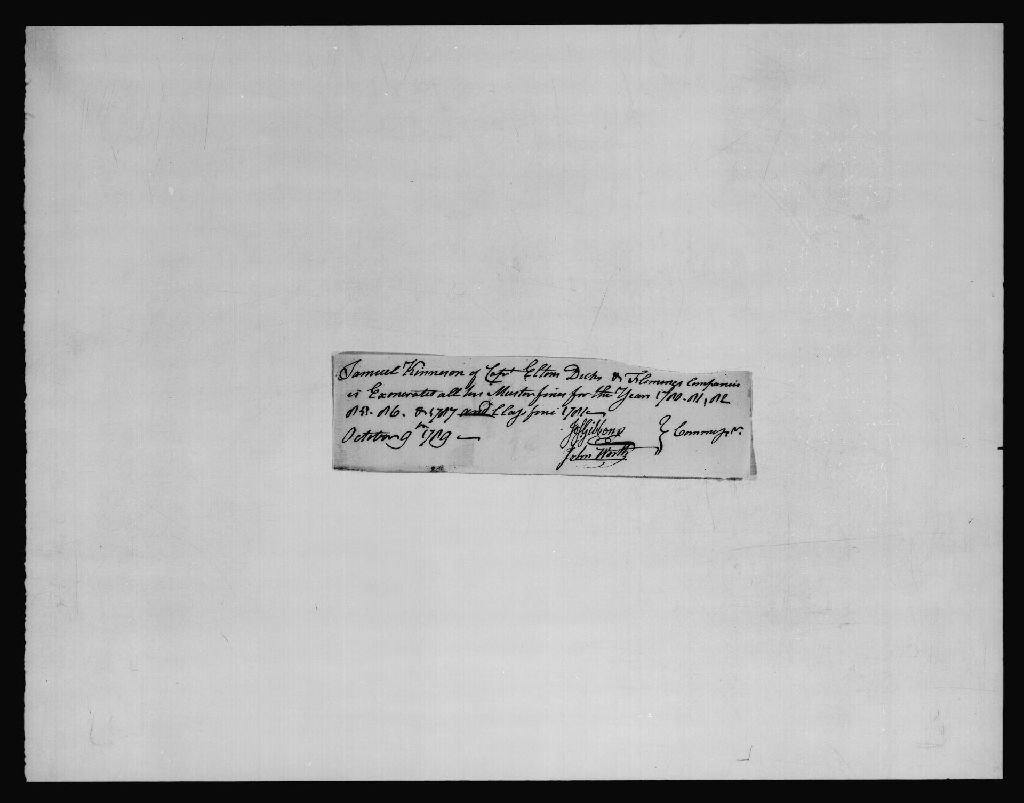 Samuel Kinneson of Capt Elton Dicks & Flemings Companies
is Exonerated all his Muster fines for the Years 1780. 81, 82
85. 86. & 1787 and Class fine 1781
October 9th 1789
Js Gibbons
John Worth
} Commissrs.